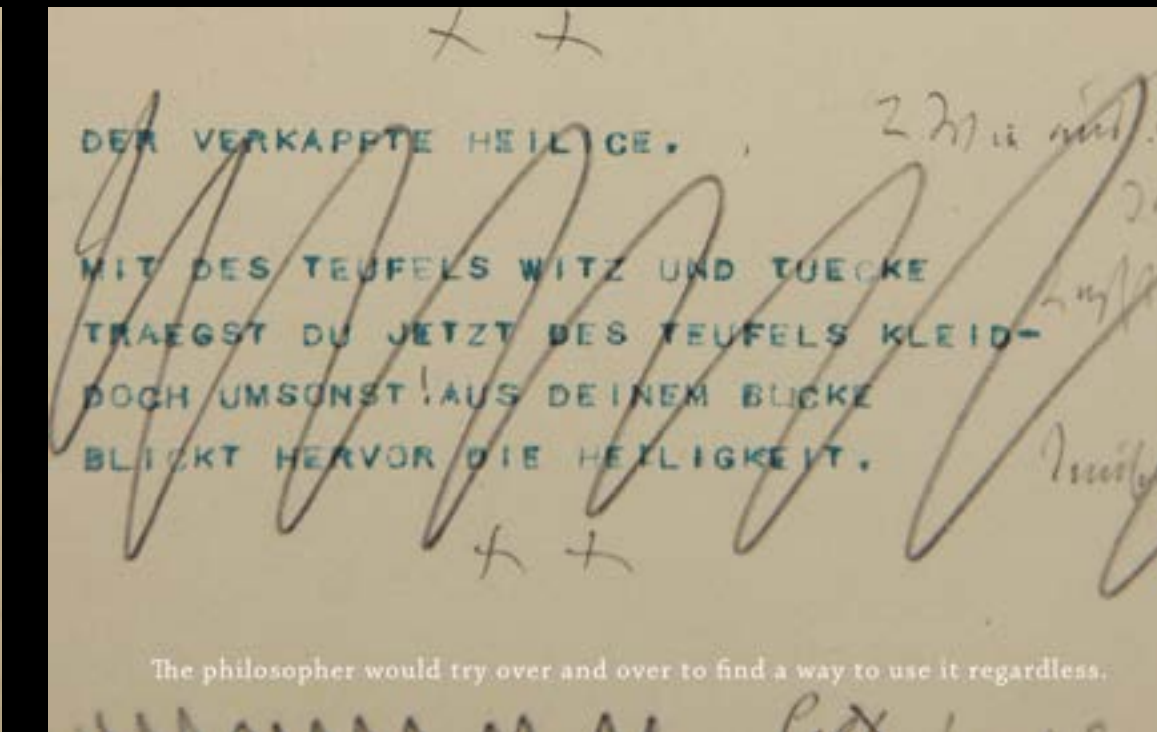 DER VERKAPPTE HEILICE.
MIT DES TEUFELS WITZ UND TUECKE
TRAEGST DU JETZT DES TEUFELS KLEID-
DOCH UMSONST! AUS DEINEM BLICKE
BLICKT HERVOR DIE HEILIGKEIT.
The philosopher would try over and over to find a way to use it regardless.